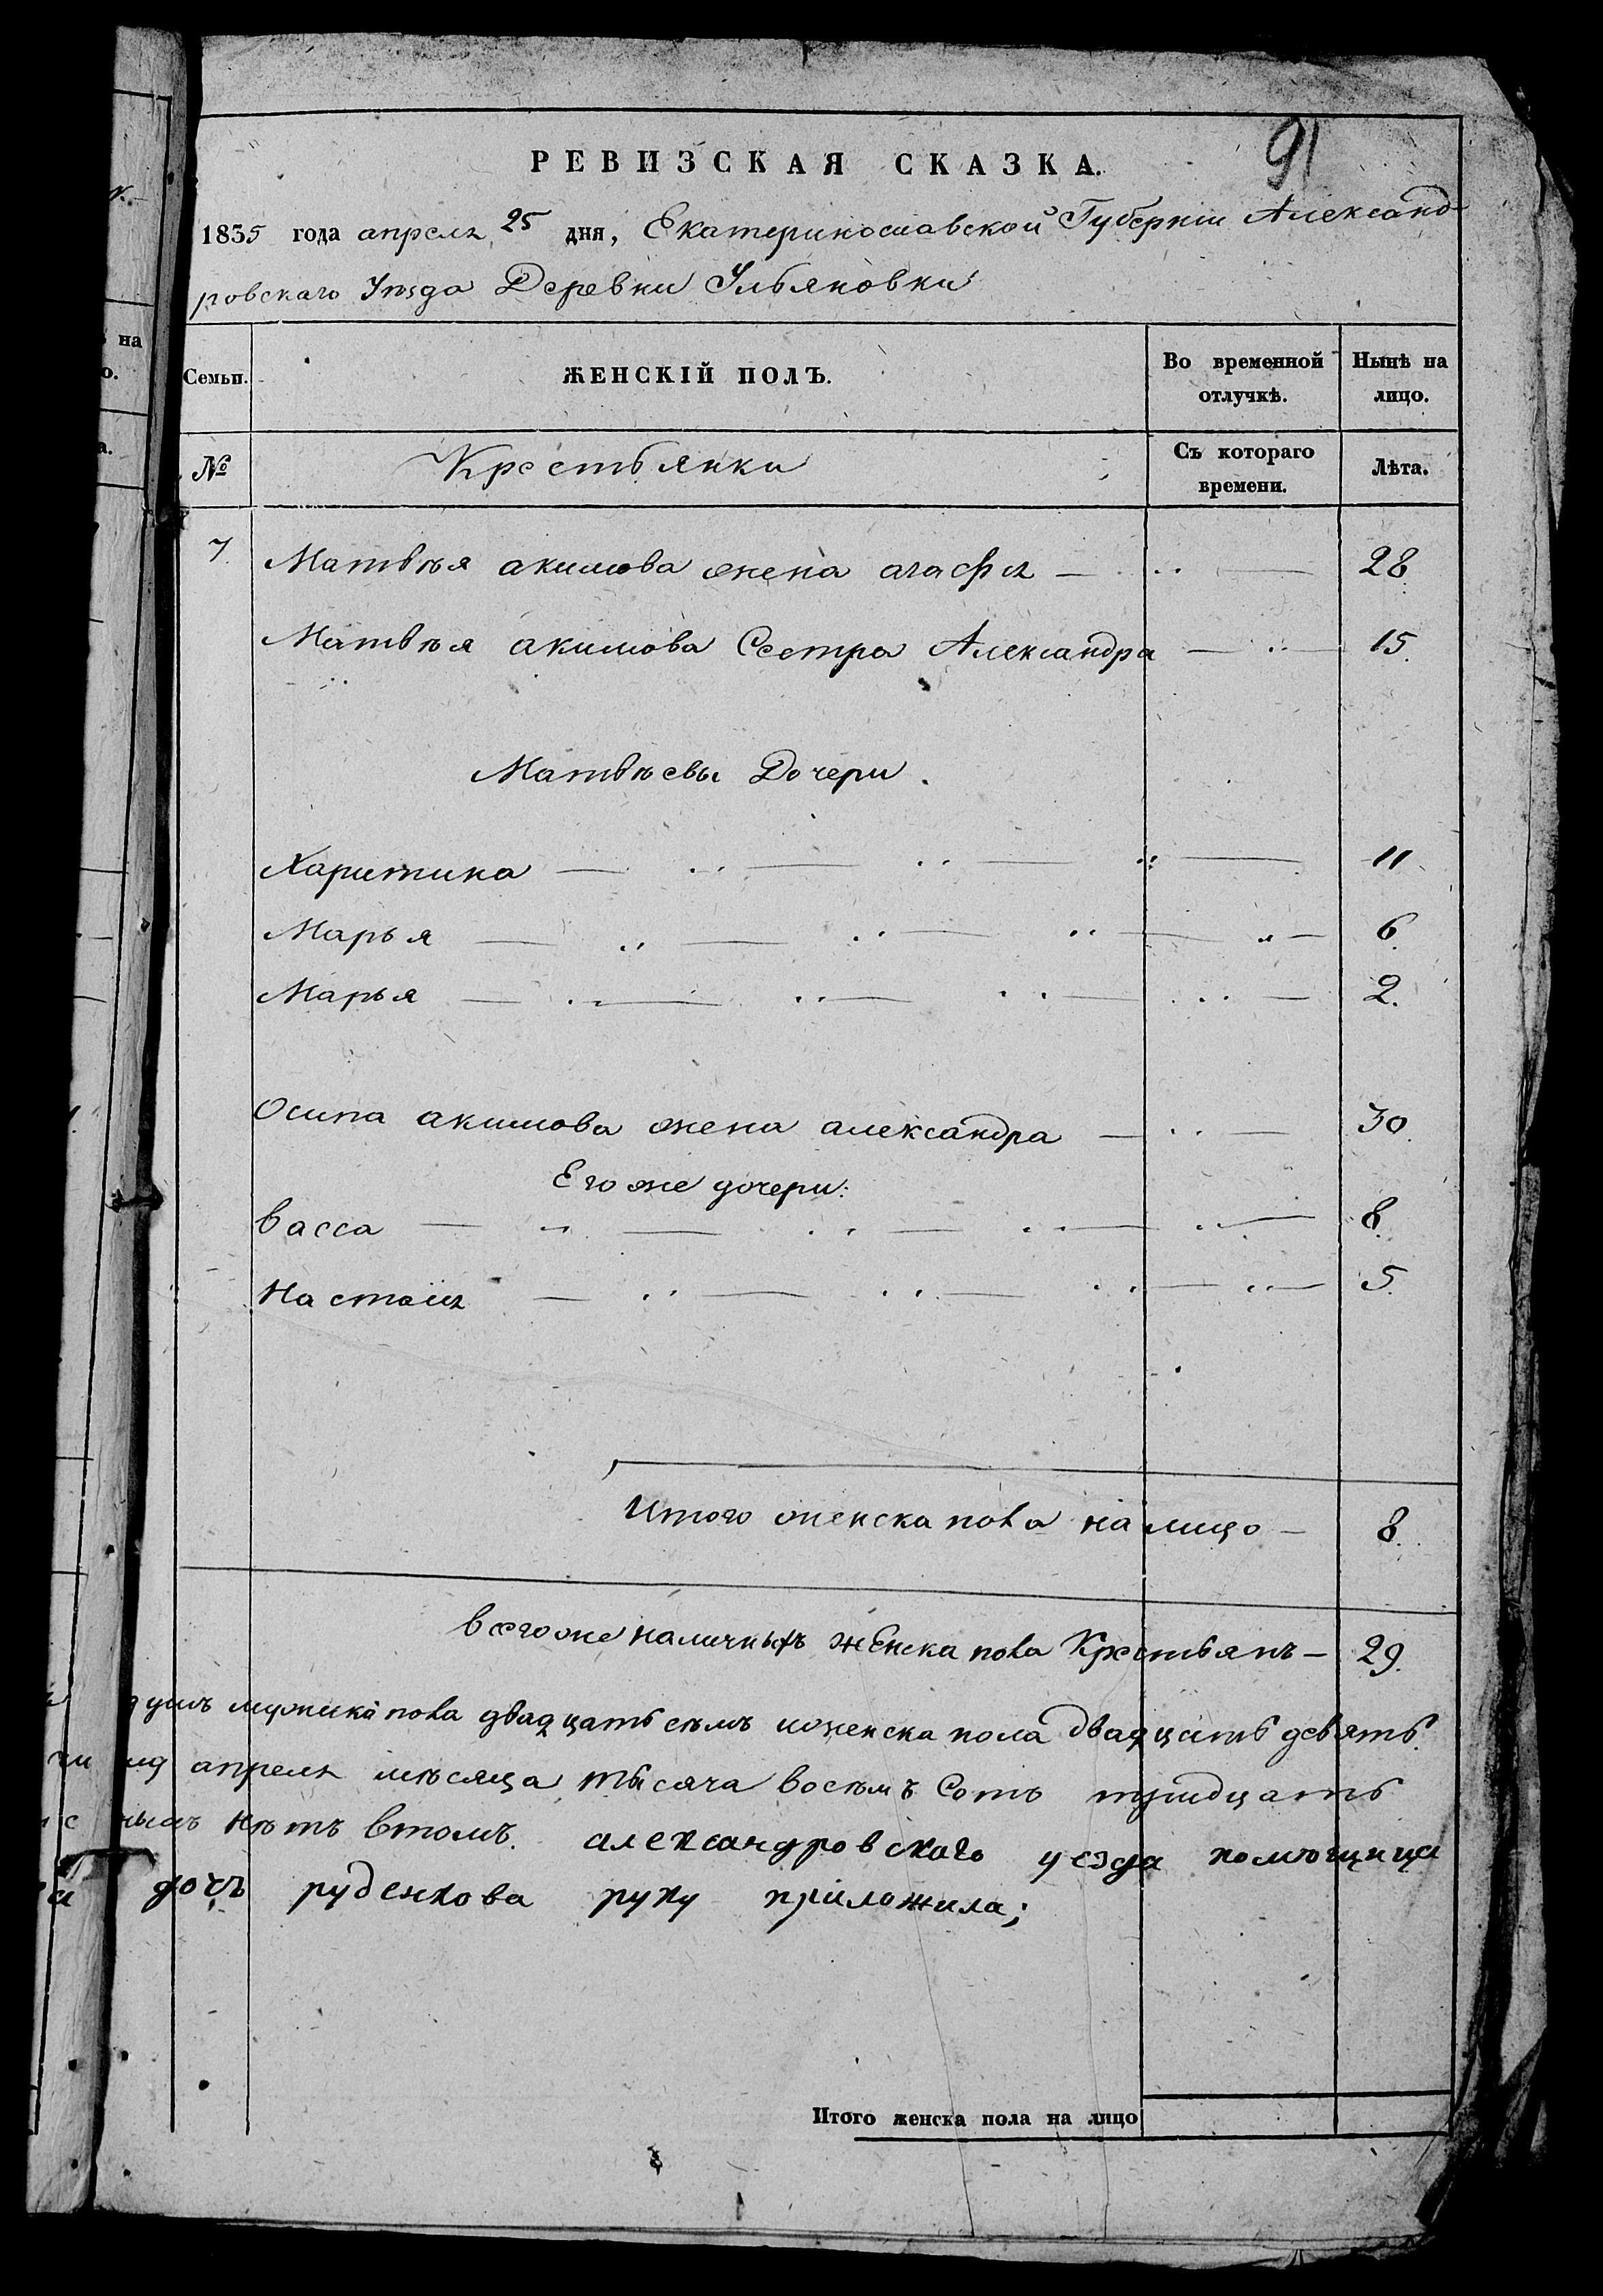 91
РЕВИЗСКАЯ СКАЗКА.
1835 года апреля 25 дня, Екатеринославской Губерніи Александ-
ровскаго Уѣзда Деревни Ульяновки
Семьи. ЖЕНСКІЙ ПОЛЪ. Во временной отлучкѣ. Нынѣ на лицо.
№ Крестьянки Съ котораго времени. Лѣта.
7 Матвѣя акимова жена агафя — „ — 28
Матвѣя акимова Сестра Александра — „ — 15.
Матвѣевы Дочери.
Харитина — „ — „ — „ — 11
Марья — „ — „ — „ — „ — 6.
Марья — „ — „ — „ — „ — 2.
Осипа акимова жена александра — „ — 30.
Его же дочери:
васса — „ — „ — „ — „ — 8.
Настасія — „ — „ — „ — „ — 5.
Итого женска пола на лицо — 8.
всего же наличныхъ женска пола Крестьянъ — 29.
душъ мужска пола двадцать семъ иженска пола двадцать девять.
апреля мѣсяца тысяча восемъ Сотъ тридцать
нѣтъ втомъ. александровского уезда помющица
дочъ руденкова руку приложила;
Итого женска пола на лицо